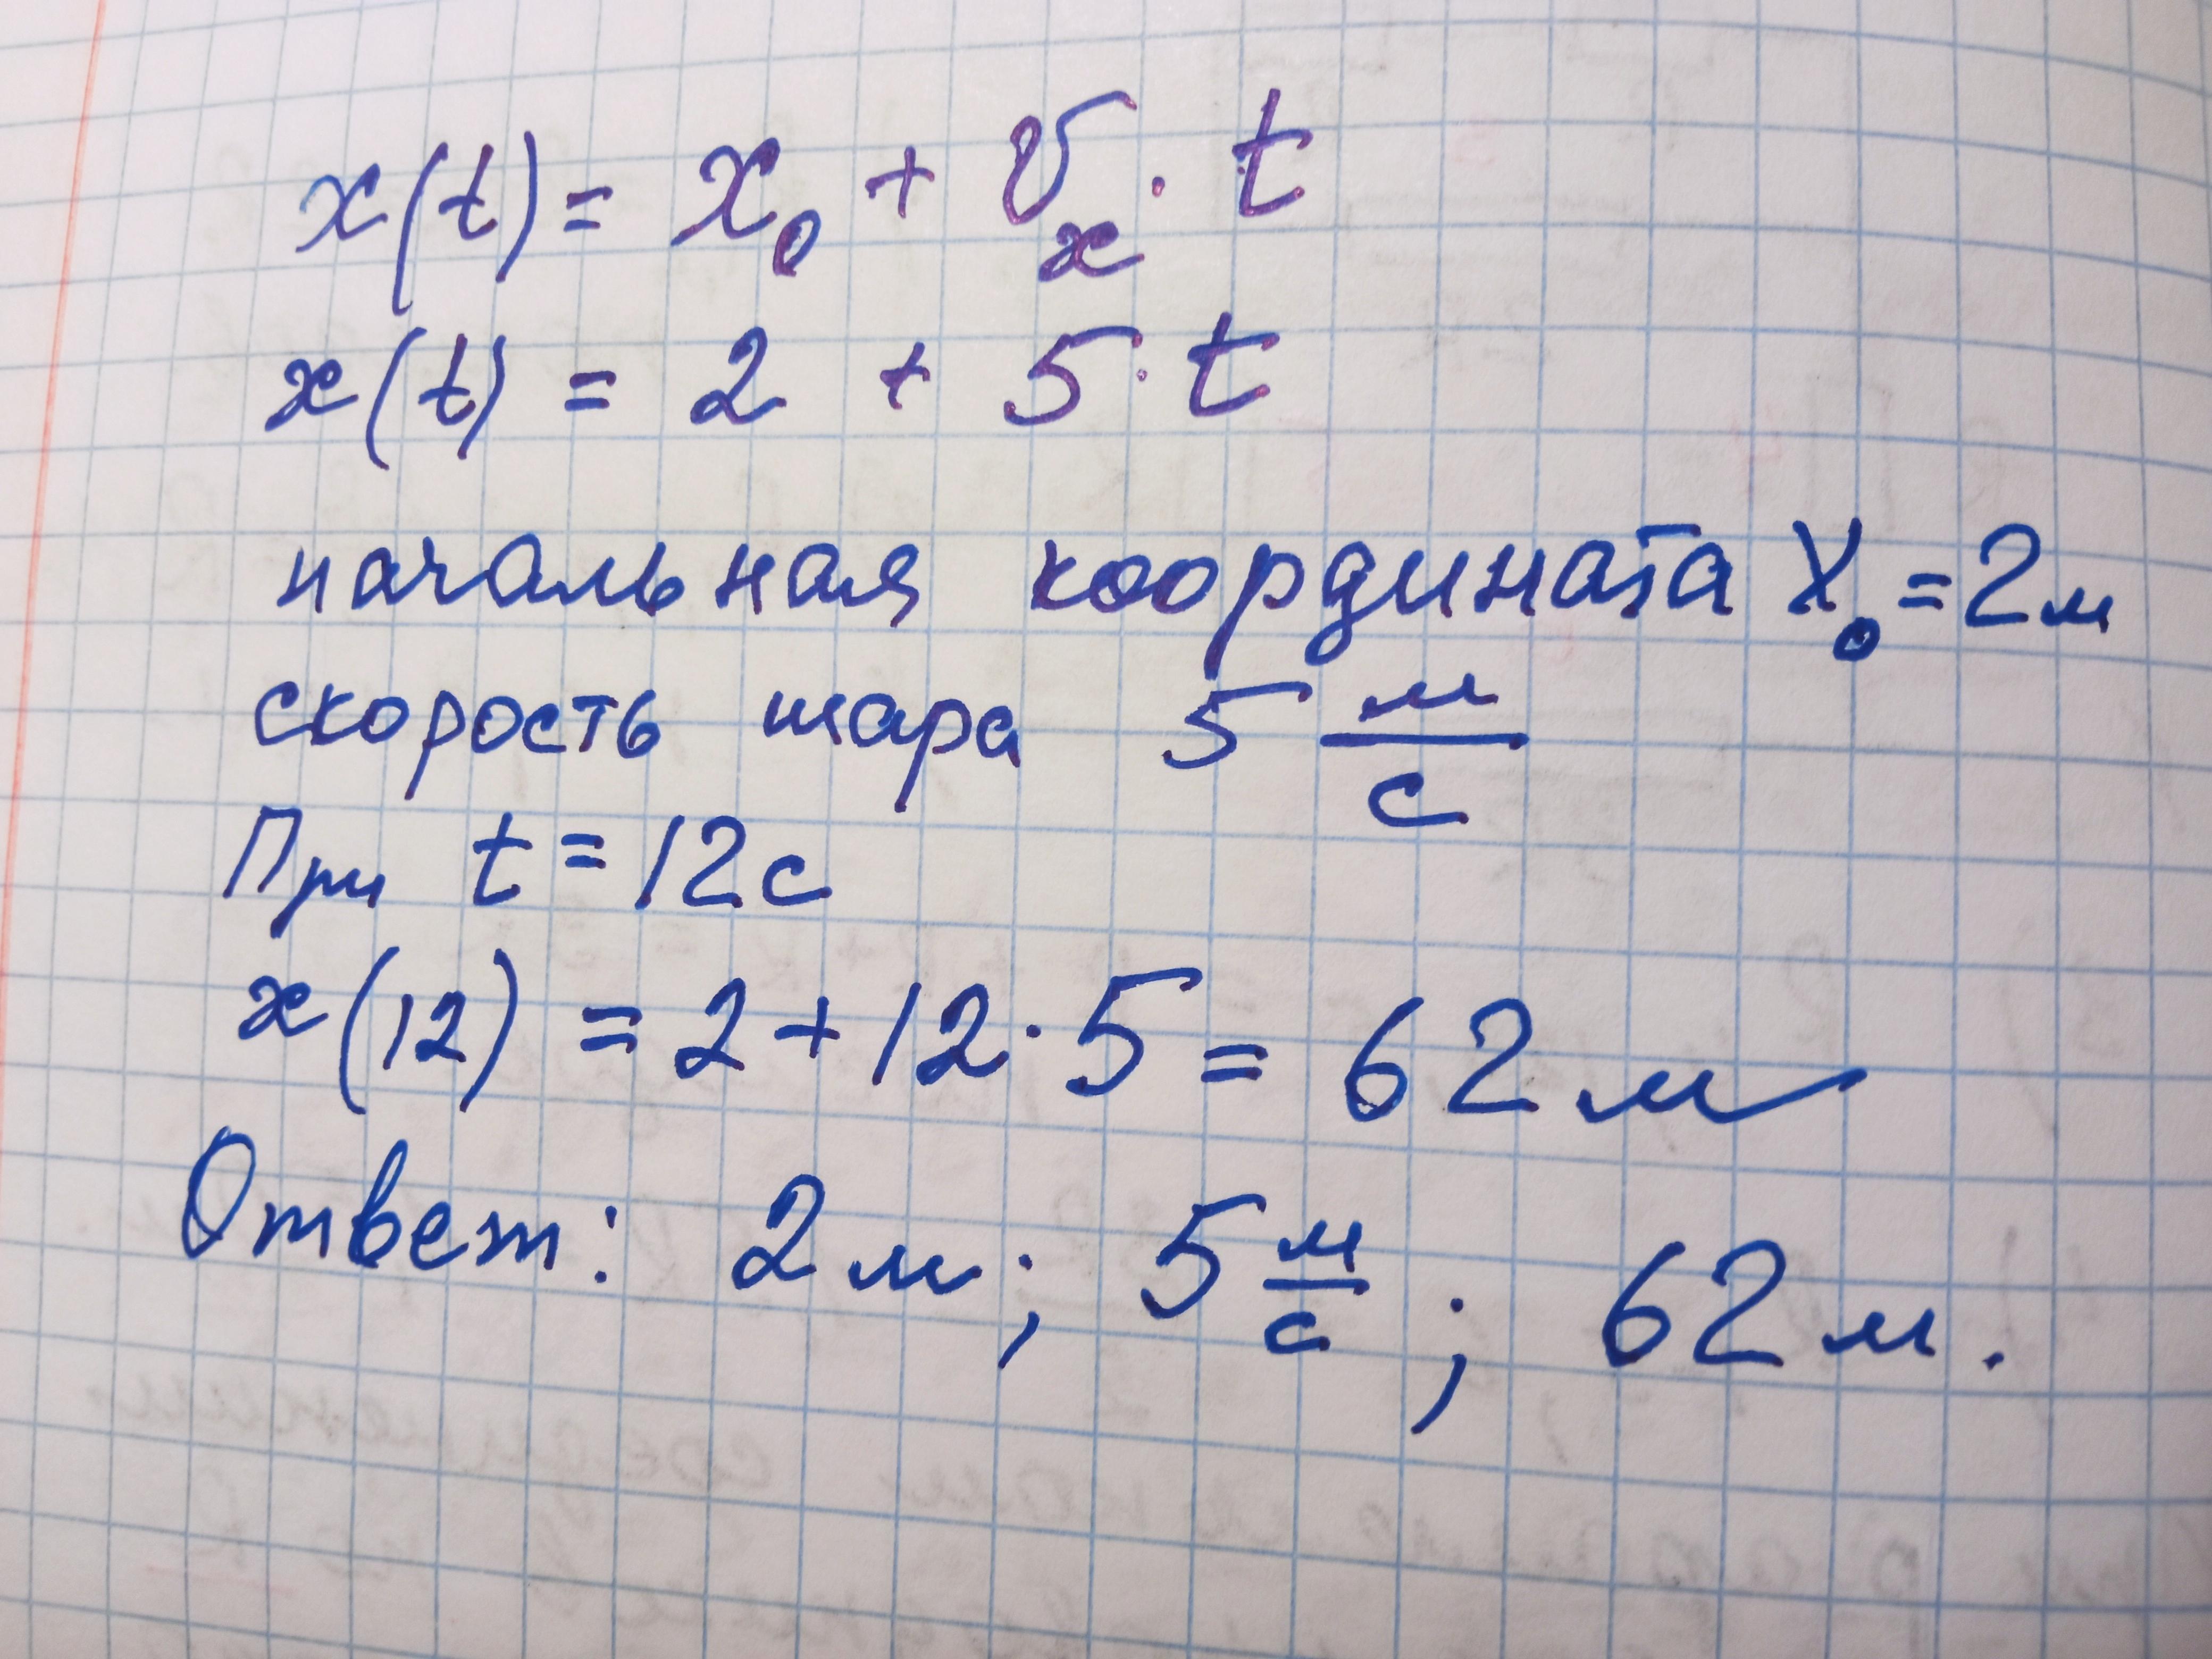 x(t) = x₀ + υₓ · t
x(t) = 2 + 5 · t
начальная координата X₀ = 2 м
скорость шара 5 м/с
При t = 12 с
x(12) = 2 + 12 · 5 = 62 м
Ответ: 2 м; 5 м/с; 62 м.